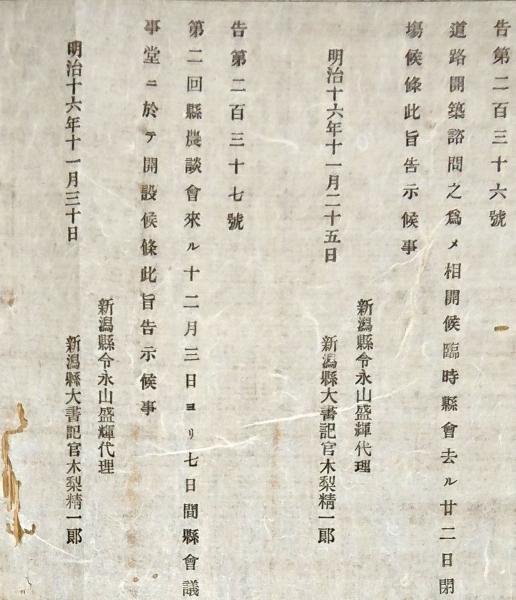 告第二百三十六號
道路開築諮問之爲メ相開候臨時縣會去ル廿二日閉
塲候條此旨告示候事
明治十六年十一月二十五日
新潟縣令永山盛輝代理
新潟縣大書記官木梨精一郎
告第二百三十七號
第二回縣農談會來ル十二月三日ヨリ七日間縣會議
事堂ニ於テ開設候條此旨告示候事
明治十六年十一月三十日
新潟縣令永山盛輝代理
新潟縣大書記官木梨精一郎